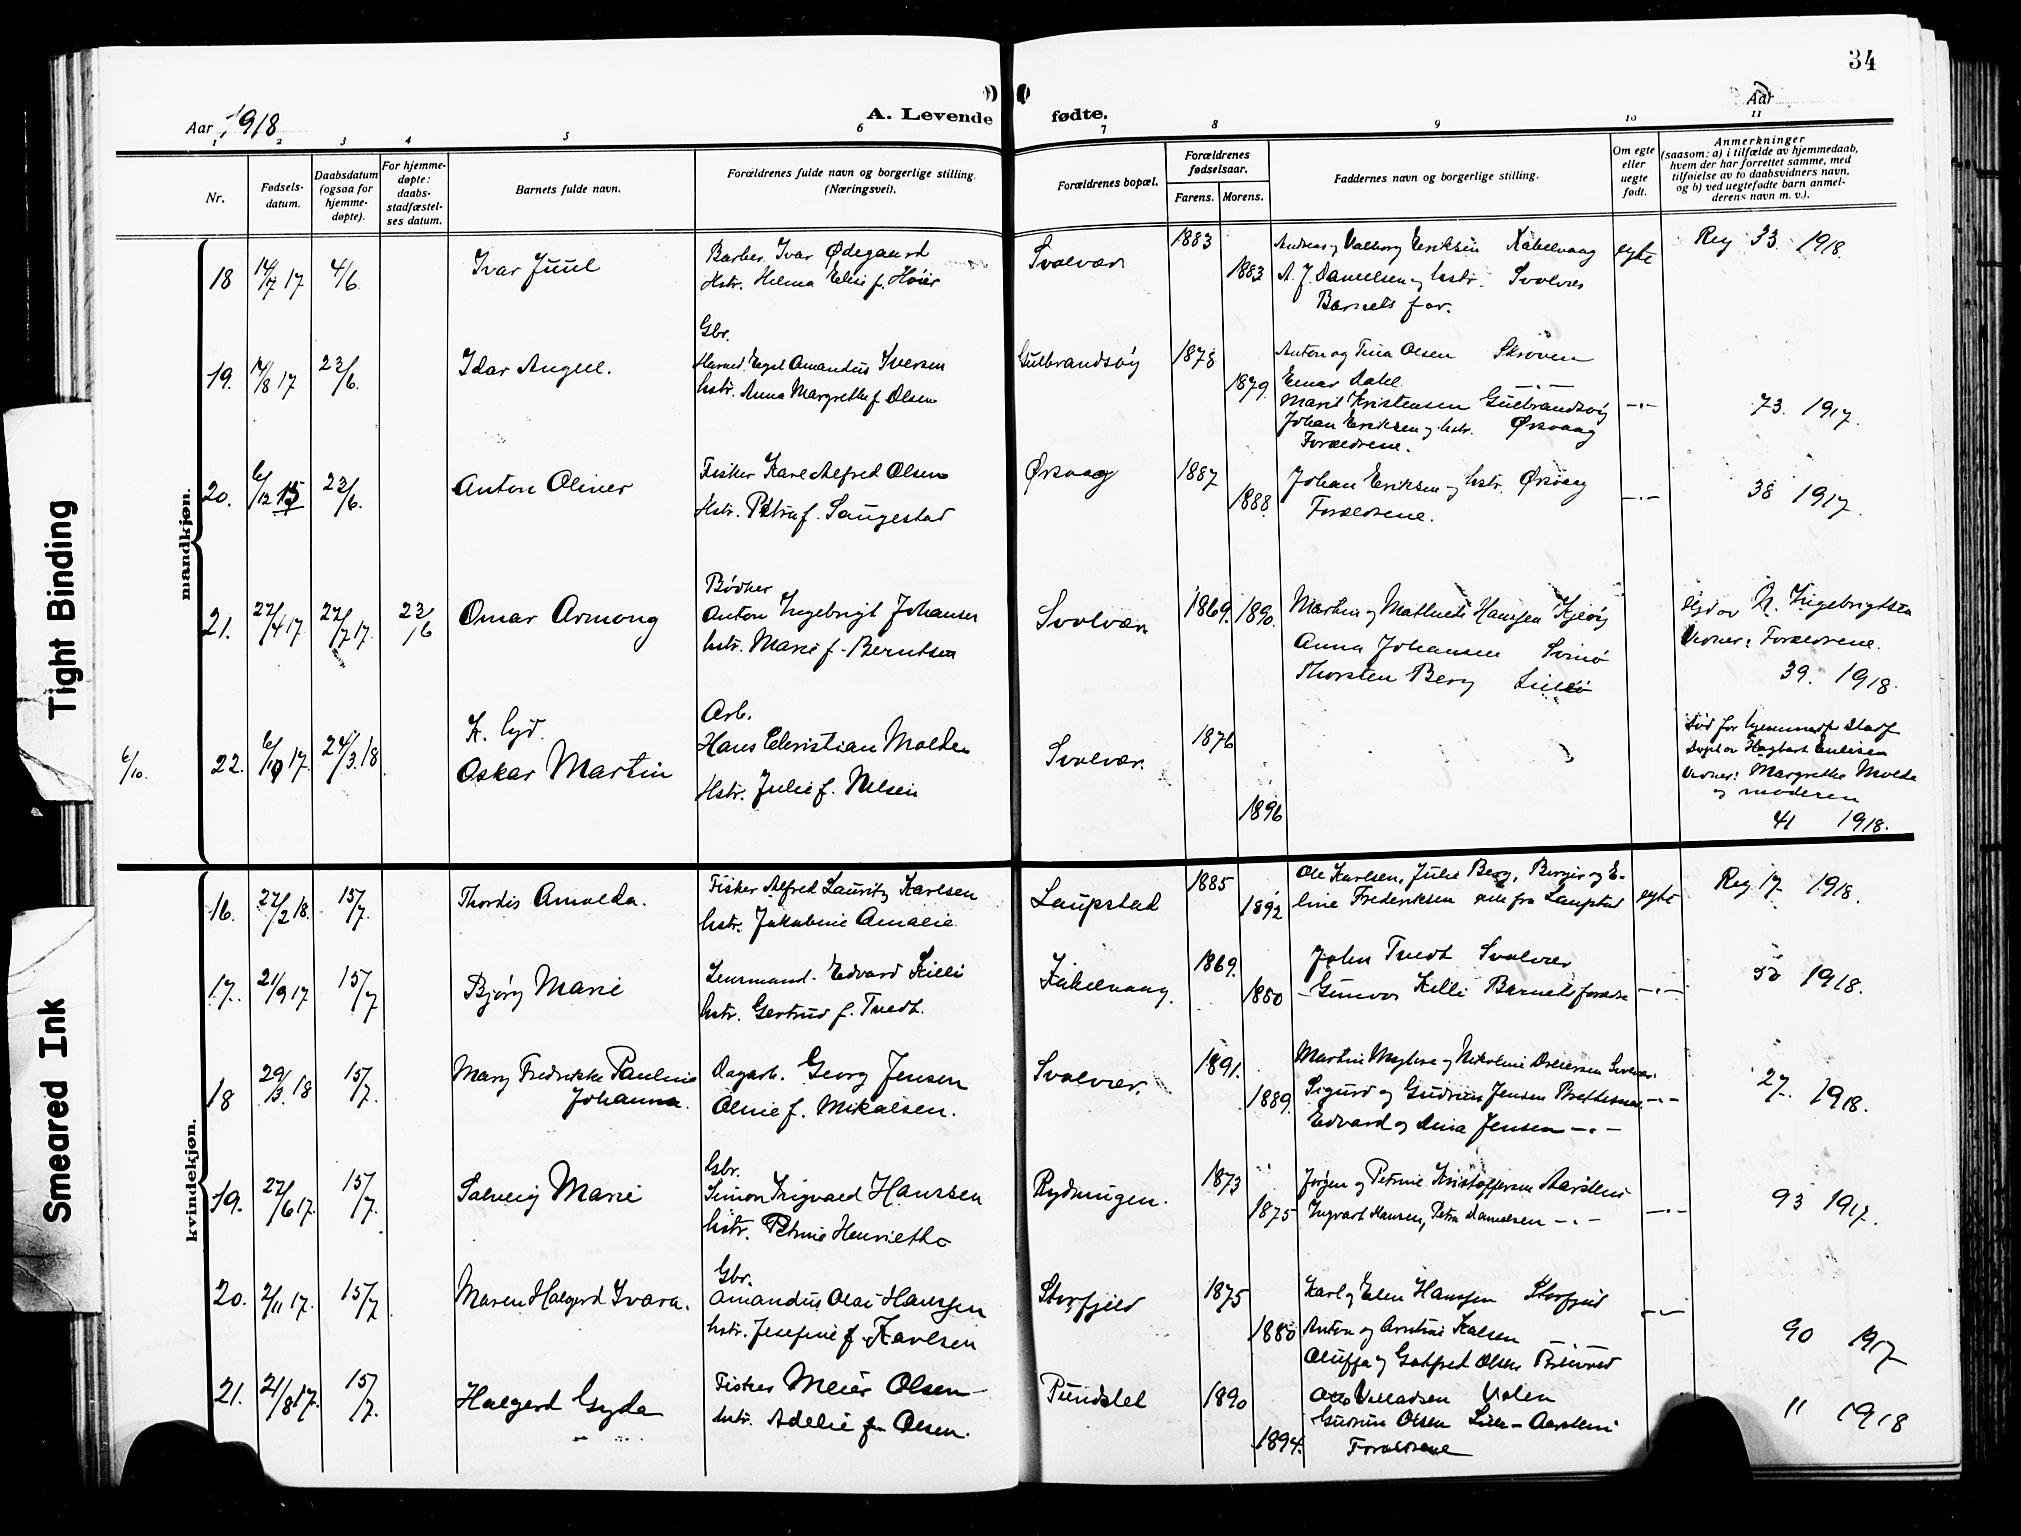 34
Aar 1918
A. Levende fødte.
Aar
1 2 3 4 5 6 7 8 9 10 11
Nr.
Fødsels-
datum.
Daabsdatum
(ogsaa for
hjemme-
døpte).
For hjemme-
døpte:
daabs-
stadfæstel-
ses datum.
Barnets fulde navn.
Forældrenes fulde navn og borgerlige stilling.
(Næringsvei).
Forældrenes bopæl.
Forældrenes
fødselsaar.
Farens. Morens.
Faddernes navn og borgerlige stilling.
Om egte
eller
uegte
født.
Anmerkninger
(saasom: a) i tilfælde av hjemmedaab,
hvem der har forrettet samme, med
tilføielse av to daabsvidners navn,
og b) ved uegtefødte barn anmel-
derens navn m. v.).
mandkjøn.
18 14/7 17 4/6.
Ivar Juul
Barber Ivar Ødegaard
Hstr. Helma Elise f. Høier
Svolvær
1883
1883
Andreas og Valborg Eriksen Kabelvaag
A. J. Danielsen og hstr. Svolvær
Barnets far.
egte
Reg 33 1918.
19. 14/8 17 23/6.
Idar Angell.
Gbr.
Harald Engel Amandus Iversen
hstr. Anna Margrethe f Olsen
Gulbrandsøy
1878
1879.
Anton og Tina Olsen Skroven
Einar Dahl
Marit Kristensen Gulbrandsøy
Johan Eriksen og hstr. Ørsvaag
Forældrene.
-"-
73. 1917.
20. 6/12 15 23/6.
Anton Oliver
Fisker Karl Alfred Olsen
Hstr. Petra f. Saugestad
Ørsvaag
1887
1888.
Johan Eriksen og hstr. Ørsvaag
Forældrene.
-"-
38 1917.
21. 27/4 17. 27/7 17. 23/6
Omar Armong
Bødker
Anton Ingebrigt Johansen
hstr. Marie f. Berntsen
Svolvær
1869. 1890.
Martin og Mathilde Hansen Kjeøy
Anna Johansen Svinø
Thorsten Berg Lillø
Ingebrigtsen
Vidner: Forældrene.
39. 1918.
6/10.
22. 6/10 17. 24/3.18.
Oskar Martin
Arb.
Hans Christian Molden
Hstr. Julie f. Nilsen
Svolvær.
1876
1896
Død før
Døpt av Hagbart
Vidner: Margrethe Molde
og moderen
41 1918.
kvindekjøn.
16. 27/2 18. 15/7.
Thordis Arnolda.
Fisker Alfred Lauritz Karlsen
hstr. Jakobine Amalie
Laupstad
1885
1892
Ole Karlsen, Julie Berg, Berger og E-
line Frederiksen alle fra Laupstad
egte
Reg 17 1918.
17. 21/9 17 15/7
Bjørg Marie
Lensmand Edvard Killi
hstr. Gertrud f. Tvedt.
Kabelvaag.
1869.
1880
John Tvedt Svolvær
Gunvor Killi Barnets forældre
-"-
1918.
18 29/3. 18 15/7.
Mary Fredrikke Pauline
Johanna.
Dagarb. Georg Jensen
Oline f. Mikalsen.
Svolvær.
1891.
1889.
Martin Myhre og Nikoline
Sigurd og Gudrun Jensen
Edvard og Dina Jensen -"-
-"-
27. 1918.
19. 27/6 17. 15/7.
Solveig Marie
Gbr.
Simon Trygvald Hanssen
hstr. Petrine Henriette
Rydningen.
1873
1875
Jørgen og Petrine Kristoffersen Aarstein
Ingvart Hansen, Petra Danielsen -"-
-"-
93 1917.
20. 2/11 17. 15/7
Maren Halgerd Ivara.
Gbr.
Amandus Olai Hanssen
hstr. Josefine f. Karlsen
Storfjeld
1875
1880
Karl og Elen Hanssen Storfjeld
Anton og Arntine
Oluffa og Gotfred Olsen
-"-
90 1917
21. 21/8 17. 15/7.
Halgerd Gyda
Fisker Meier Olsen
hstr. Adelie f. Olsen.
Pundslet
1890
1894.
Otto Villadsen Valen
Gudrun Olsen Lille-Aarstein
Forældrene
11 1918
Tight Binding
Smeared Ink